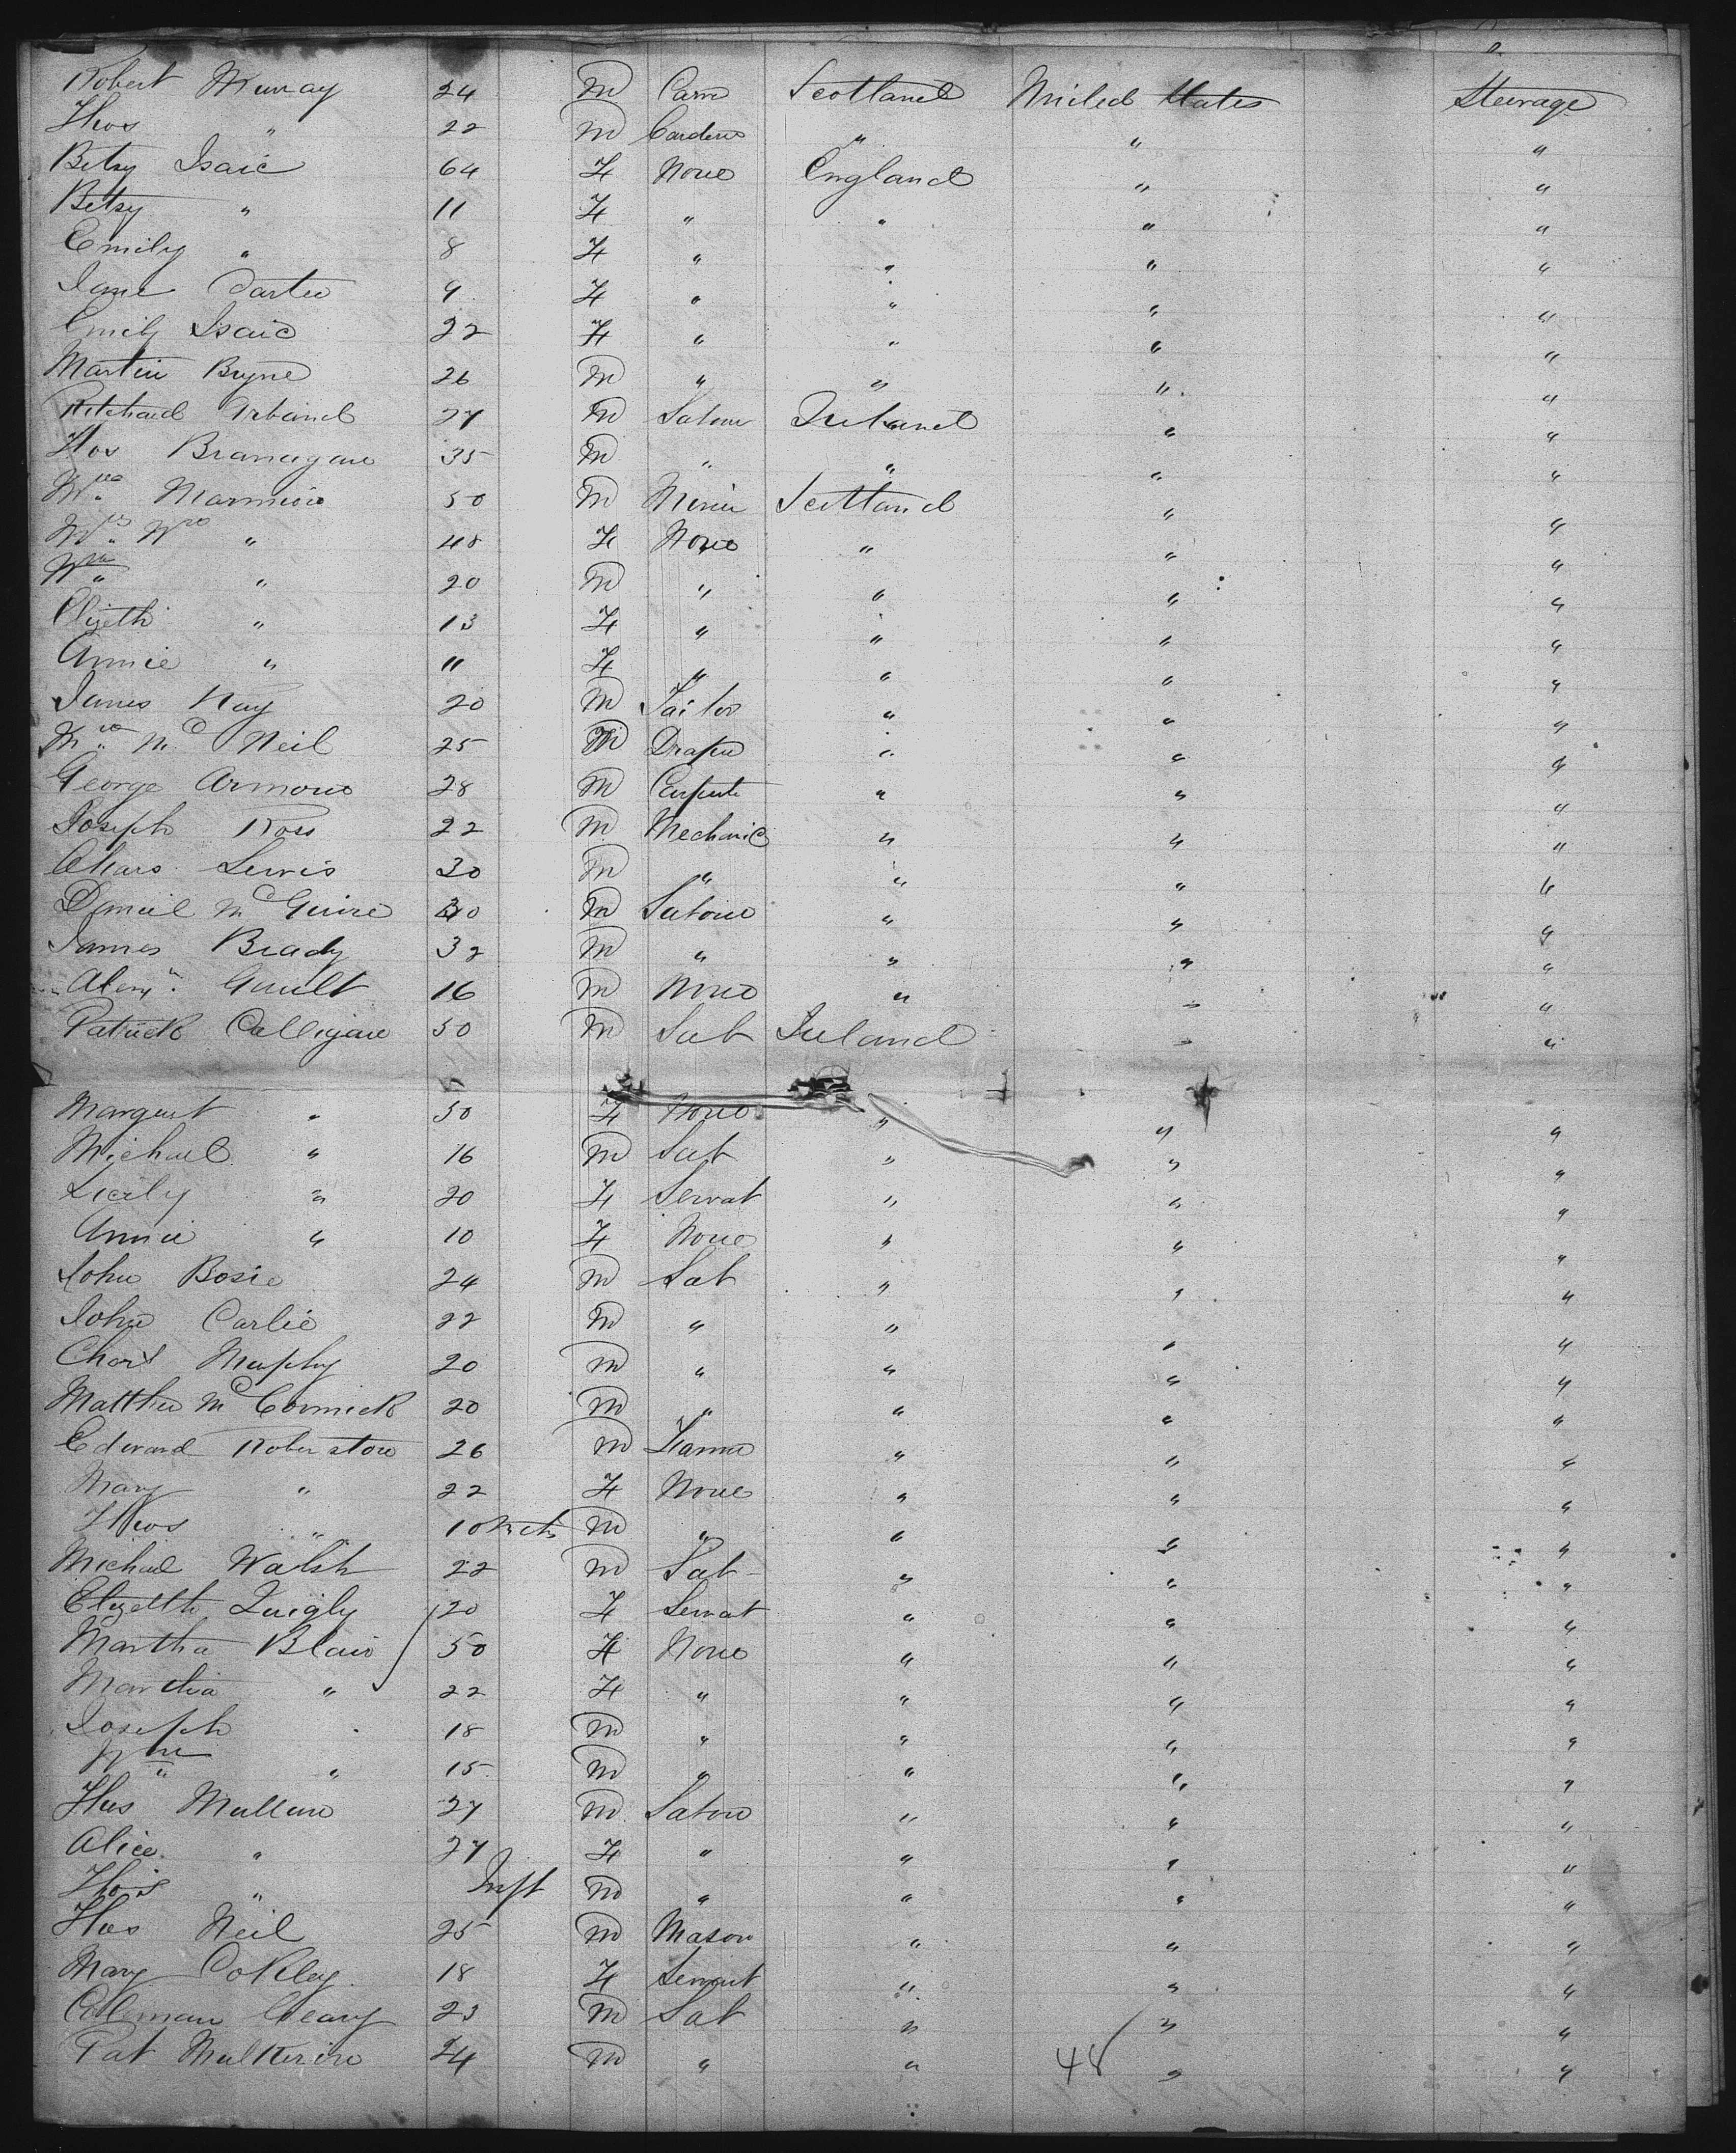 Robert Murray 24 M Carr Scotland United States Steerage
Thos " 22 M Gardener " " "
Betsy Isaic 64 F None England " "
Betsy " 11 F " " " "
Emily " 8 F " " " "
Jane Carter 9 F " " " "
Emily Isaic 22 F " " " "
Martin Bryne 26 M " " " "
Ritchard 27 M Labour Ireland " "
Thos Branagan 35 M " " " "
Wm Marmion 50 M Miner Scotland " "
Mrs Wm " 48 F None " " "
Wm " 20 M " " " "
Elizeth " 13 F " " " "
Annie " 11 F " " " "
James Kay 20 M Tailor " " "
Wm Mc Neil 25 M Draper " " "
George Armour 28 M Carpente " " "
Joseph Ross 22 M Mechanic " " "
Chars Lewis 30 M " " " "
Daniel Mc Guire 30 M Labour " " "
James Brady 32 M " " " "
Alexr Gault 16 M None " " "
Patrick Calligan 50 M Lab Ireland " "
Margaret " 50 F None " " "
Michael " 16 M Lab " " "
Sicily " 20 F Servat " " "
Annie " 10 F None " " "
John Bosie 24 M Lab " " "
John Carlie 22 M " " " "
Chars Murphy 20 M " " " "
Matthew Mc Cormick 20 M " " " "
Edward Roberston 26 M Farmer " " "
Mary " 22 F None " " "
Thos " 10 Mths M " " " "
Michael Walsh 22 M Lab " " "
Elizeth Quigly 20 F Servat " " "
Martha Blair 50 F None " " "
Martha " 22 F " " " "
Joseph " 18 M " " " "
Wm " 15 M " " " "
Thos Mullan 27 M Labour " " "
Alice " 27 F " " " "
Thos " Inft M " " " "
Thos Neil 25 M Mason " " "
Mary Cokley 18 F Servant " " "
Colman Geary 23 M Lab " " "
Pat Mulkerin 24 M " " 48 " "